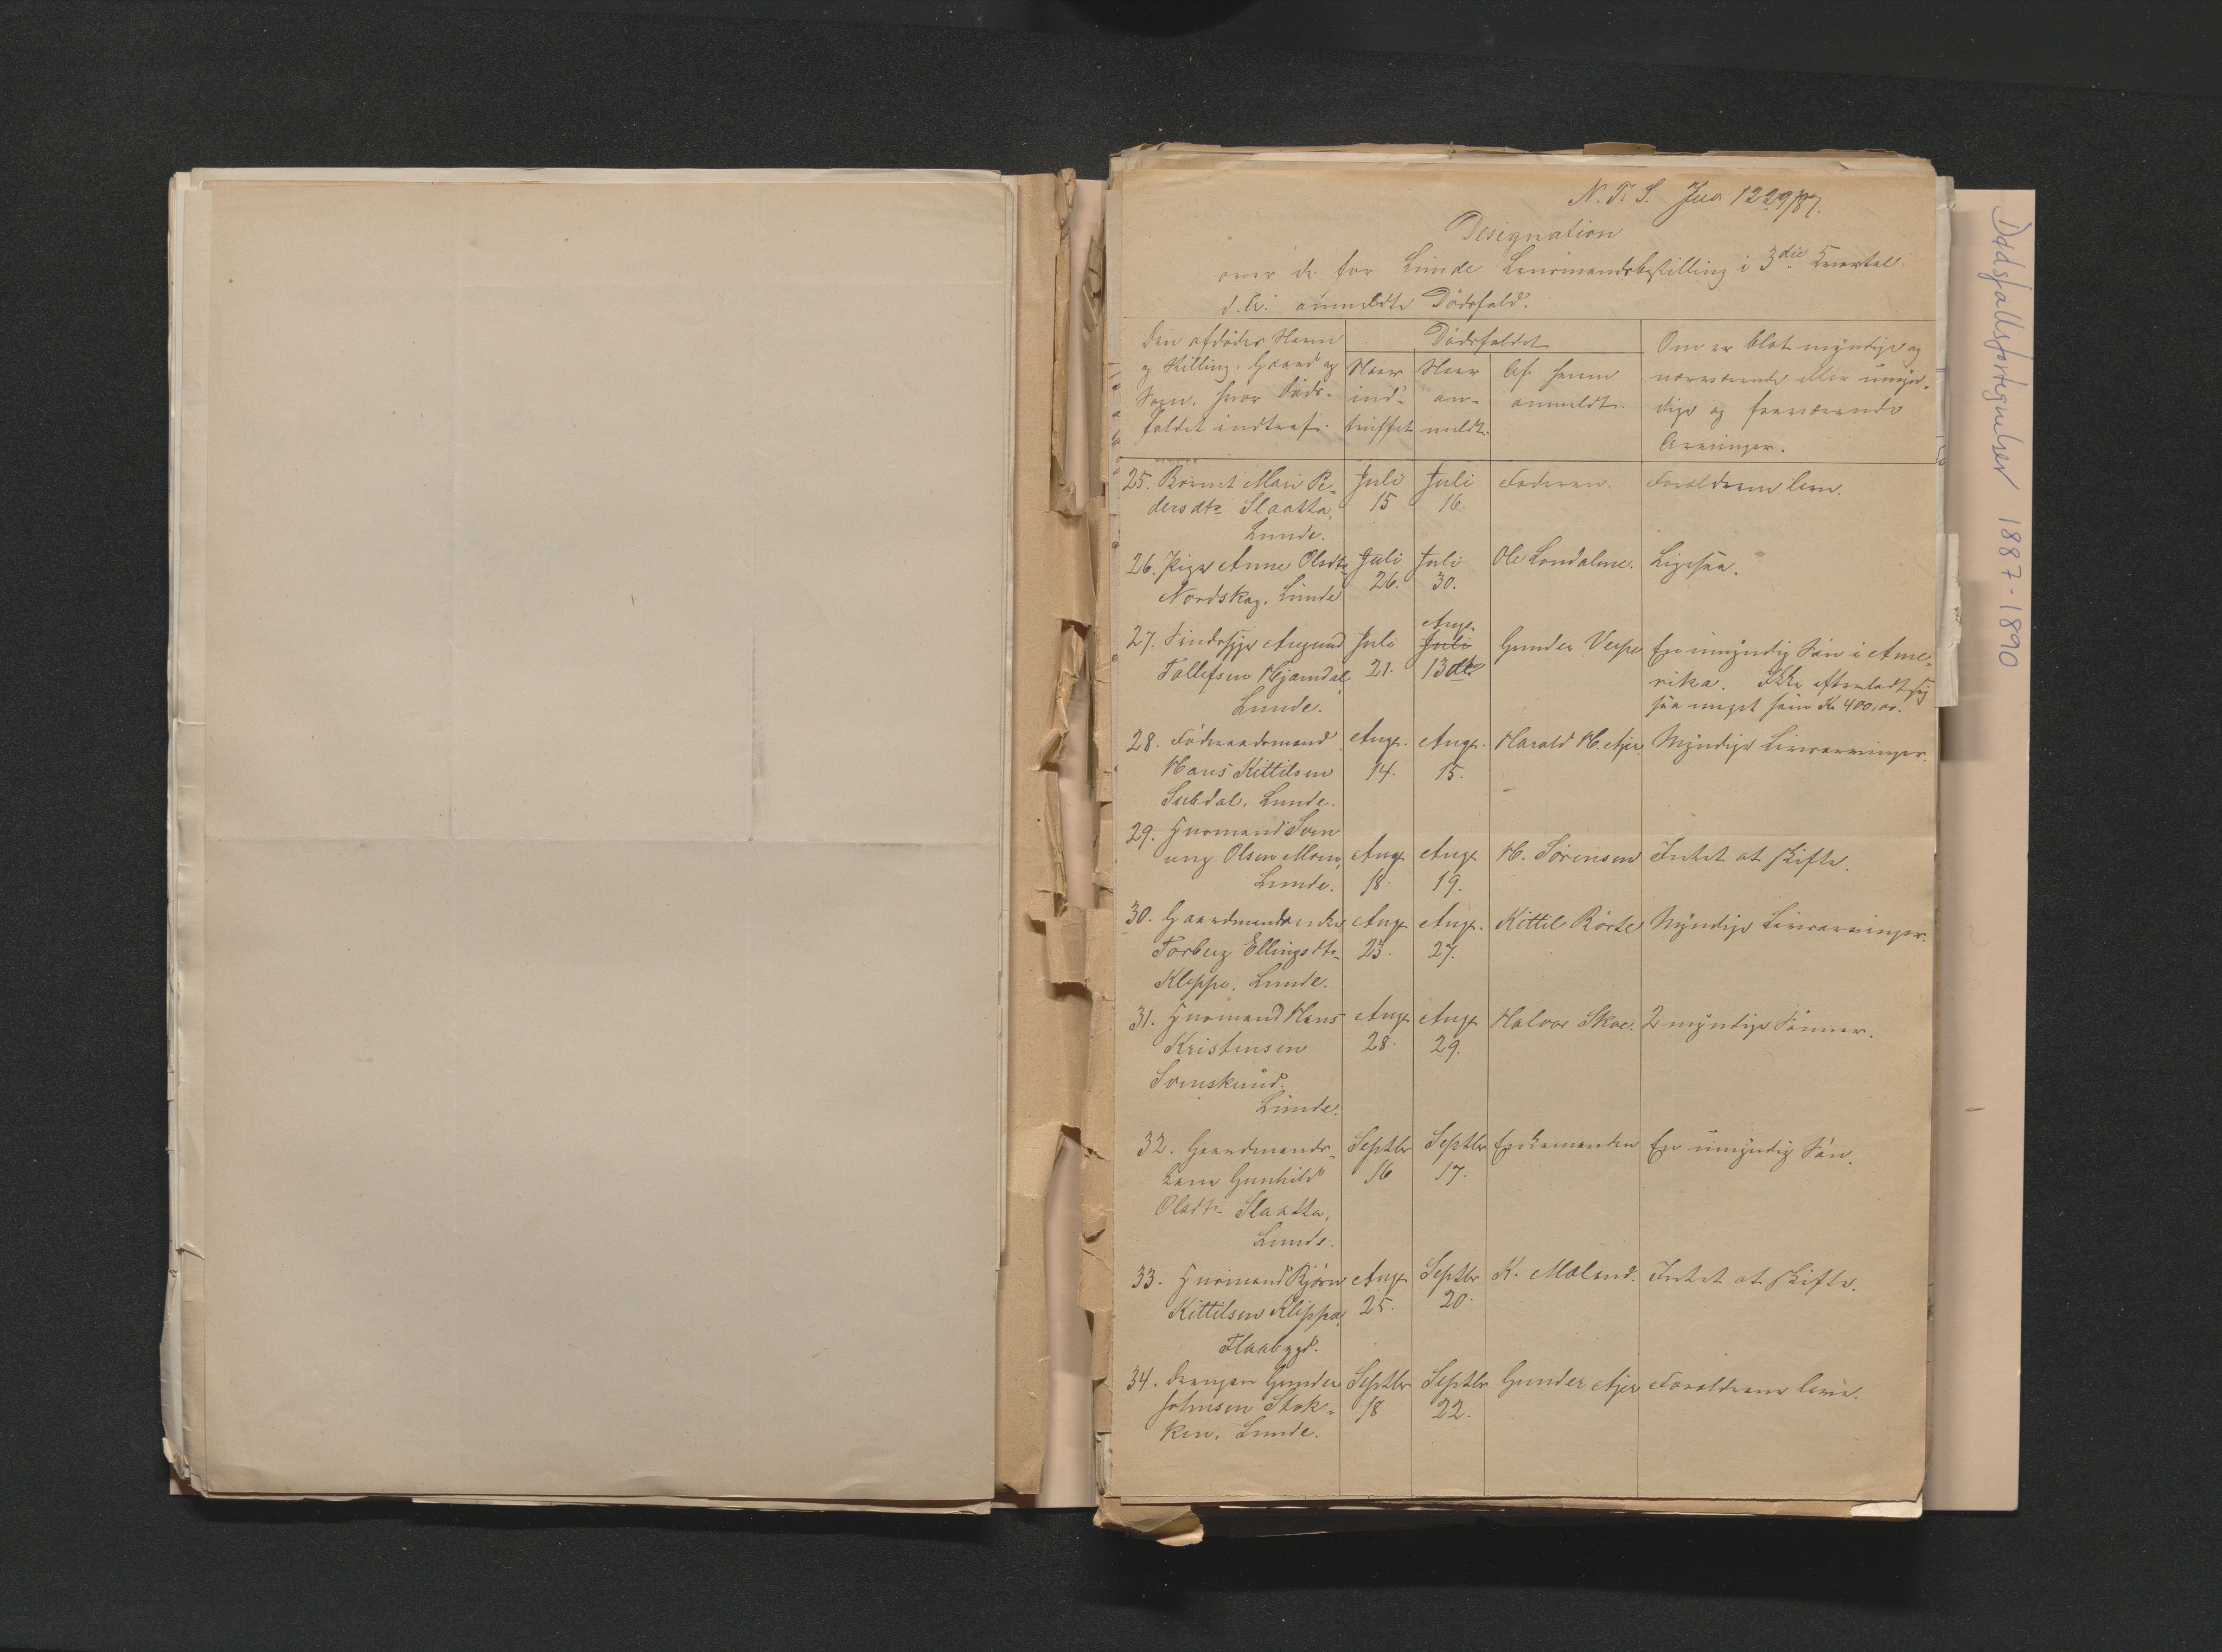 N. T. S. Jnr 1229/87.
Designation
over de for Lunde Lensmandsbestilling i 3die Kvartal
d. A. anmeldte Dödsfald.
Den afdödes Navn
og Stilling, Gaard og
Sogn, hvor Döds-
faldet indtraf.
Dödsfaldet
Naar
ind-
truffet
Naar
an-
meldt.
Af hvem
anmeldt.
Om er blot myndige og
nærværende eller umyn-
dige og fraværende
Arvinger.
25. Barnet Mari Pe-
dersdtr Slaatta,
Lunde.
Juli
15
Juli
16.
Faderen.
Forældrene leve.
26. Pige Anne Olsdtr
Nordskog, Lunde
Juli
26.
Juli
30.
Ole Londalme.
Ligesaa.
27. Sindssyge Amund
Tollefsen Hjamdal,
Lunde.
Juli
21.
Aug.
Juli
13de
Gunder Verpe
En umyndig Sön i Ame-
rika. Ikke efterladt sig
saa meget som Kr 400,00.
28. Föderaadsmand
Hans Kittilsen
Subdal, Lunde.
Aug.
14.
Aug.
15.
Harald H. Ajer.
Myndige Livsarvinger.
29. Husmand Sven
ung Olsen Moen,
Lunde.
Aug
18.
Aug
19.
H. Sörensen
Intet at skifte.
30. Gaardmandsenke
Torberg Ellingsdtr
Kleppe, Lunde.
Aug
23.
Aug.
27.
Kittil Börte
Myndige Livsarvinger.
31. Husmand Hans
Kristensen
Svenskerud.
Lunde.
Aug
28.
Aug
29.
Halvor Skoe.
2 myndige Sönner.
32. Gaardmands-
kone Gunhild
Olsdtr Slaatta,
Lunde.
Septbr
16
Septbr
17.
Enkemanden
En umyndig Sön.
33. Husmand Björn
Kittilsen Kleppa,
Flaabygd.
Aug
25.
Septbr
20.
K. Moland.
Intet at skifte.
34. Drengen Gunder
Johnsen Stok-
ken, Lunde.
Septbr
18
Septbr
22.
Gunder Ajer
Forældrene leve.
Dødsfallsfortegnelser 1887-1890